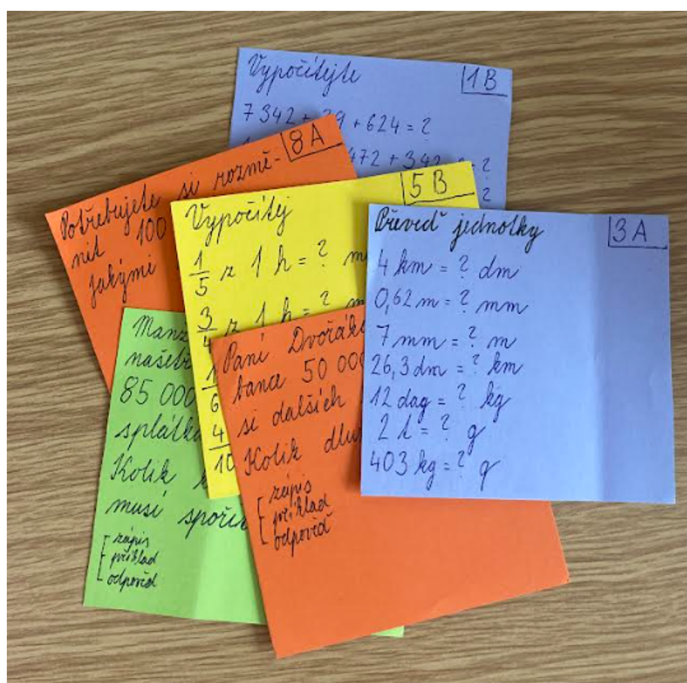 Vypočítejte
1B
7 342 + 29 + 624 = ?
472 + 342 = ?
?
8A
Potřebujete si rozmě-
nit 100
jakými
5B
Vypočítej
1/5 z 1 h = ?
3/4 z 1 h = ?
1
6
4
10
3A
Převeď jednotky
4 km = ? dm
0,62 m = ? mm
7 mm = ? m
26,3 dm = ? km
12 dag = ? kg
2 t = ? g
403 kg = ? g
našetř
85 000
splátka
Kolik
musí spoři
zápis
příklad
odpověď
Paní Dvořák
bance 50 000
si dalších
Kolik dlu
zápis
příklad
odpověď